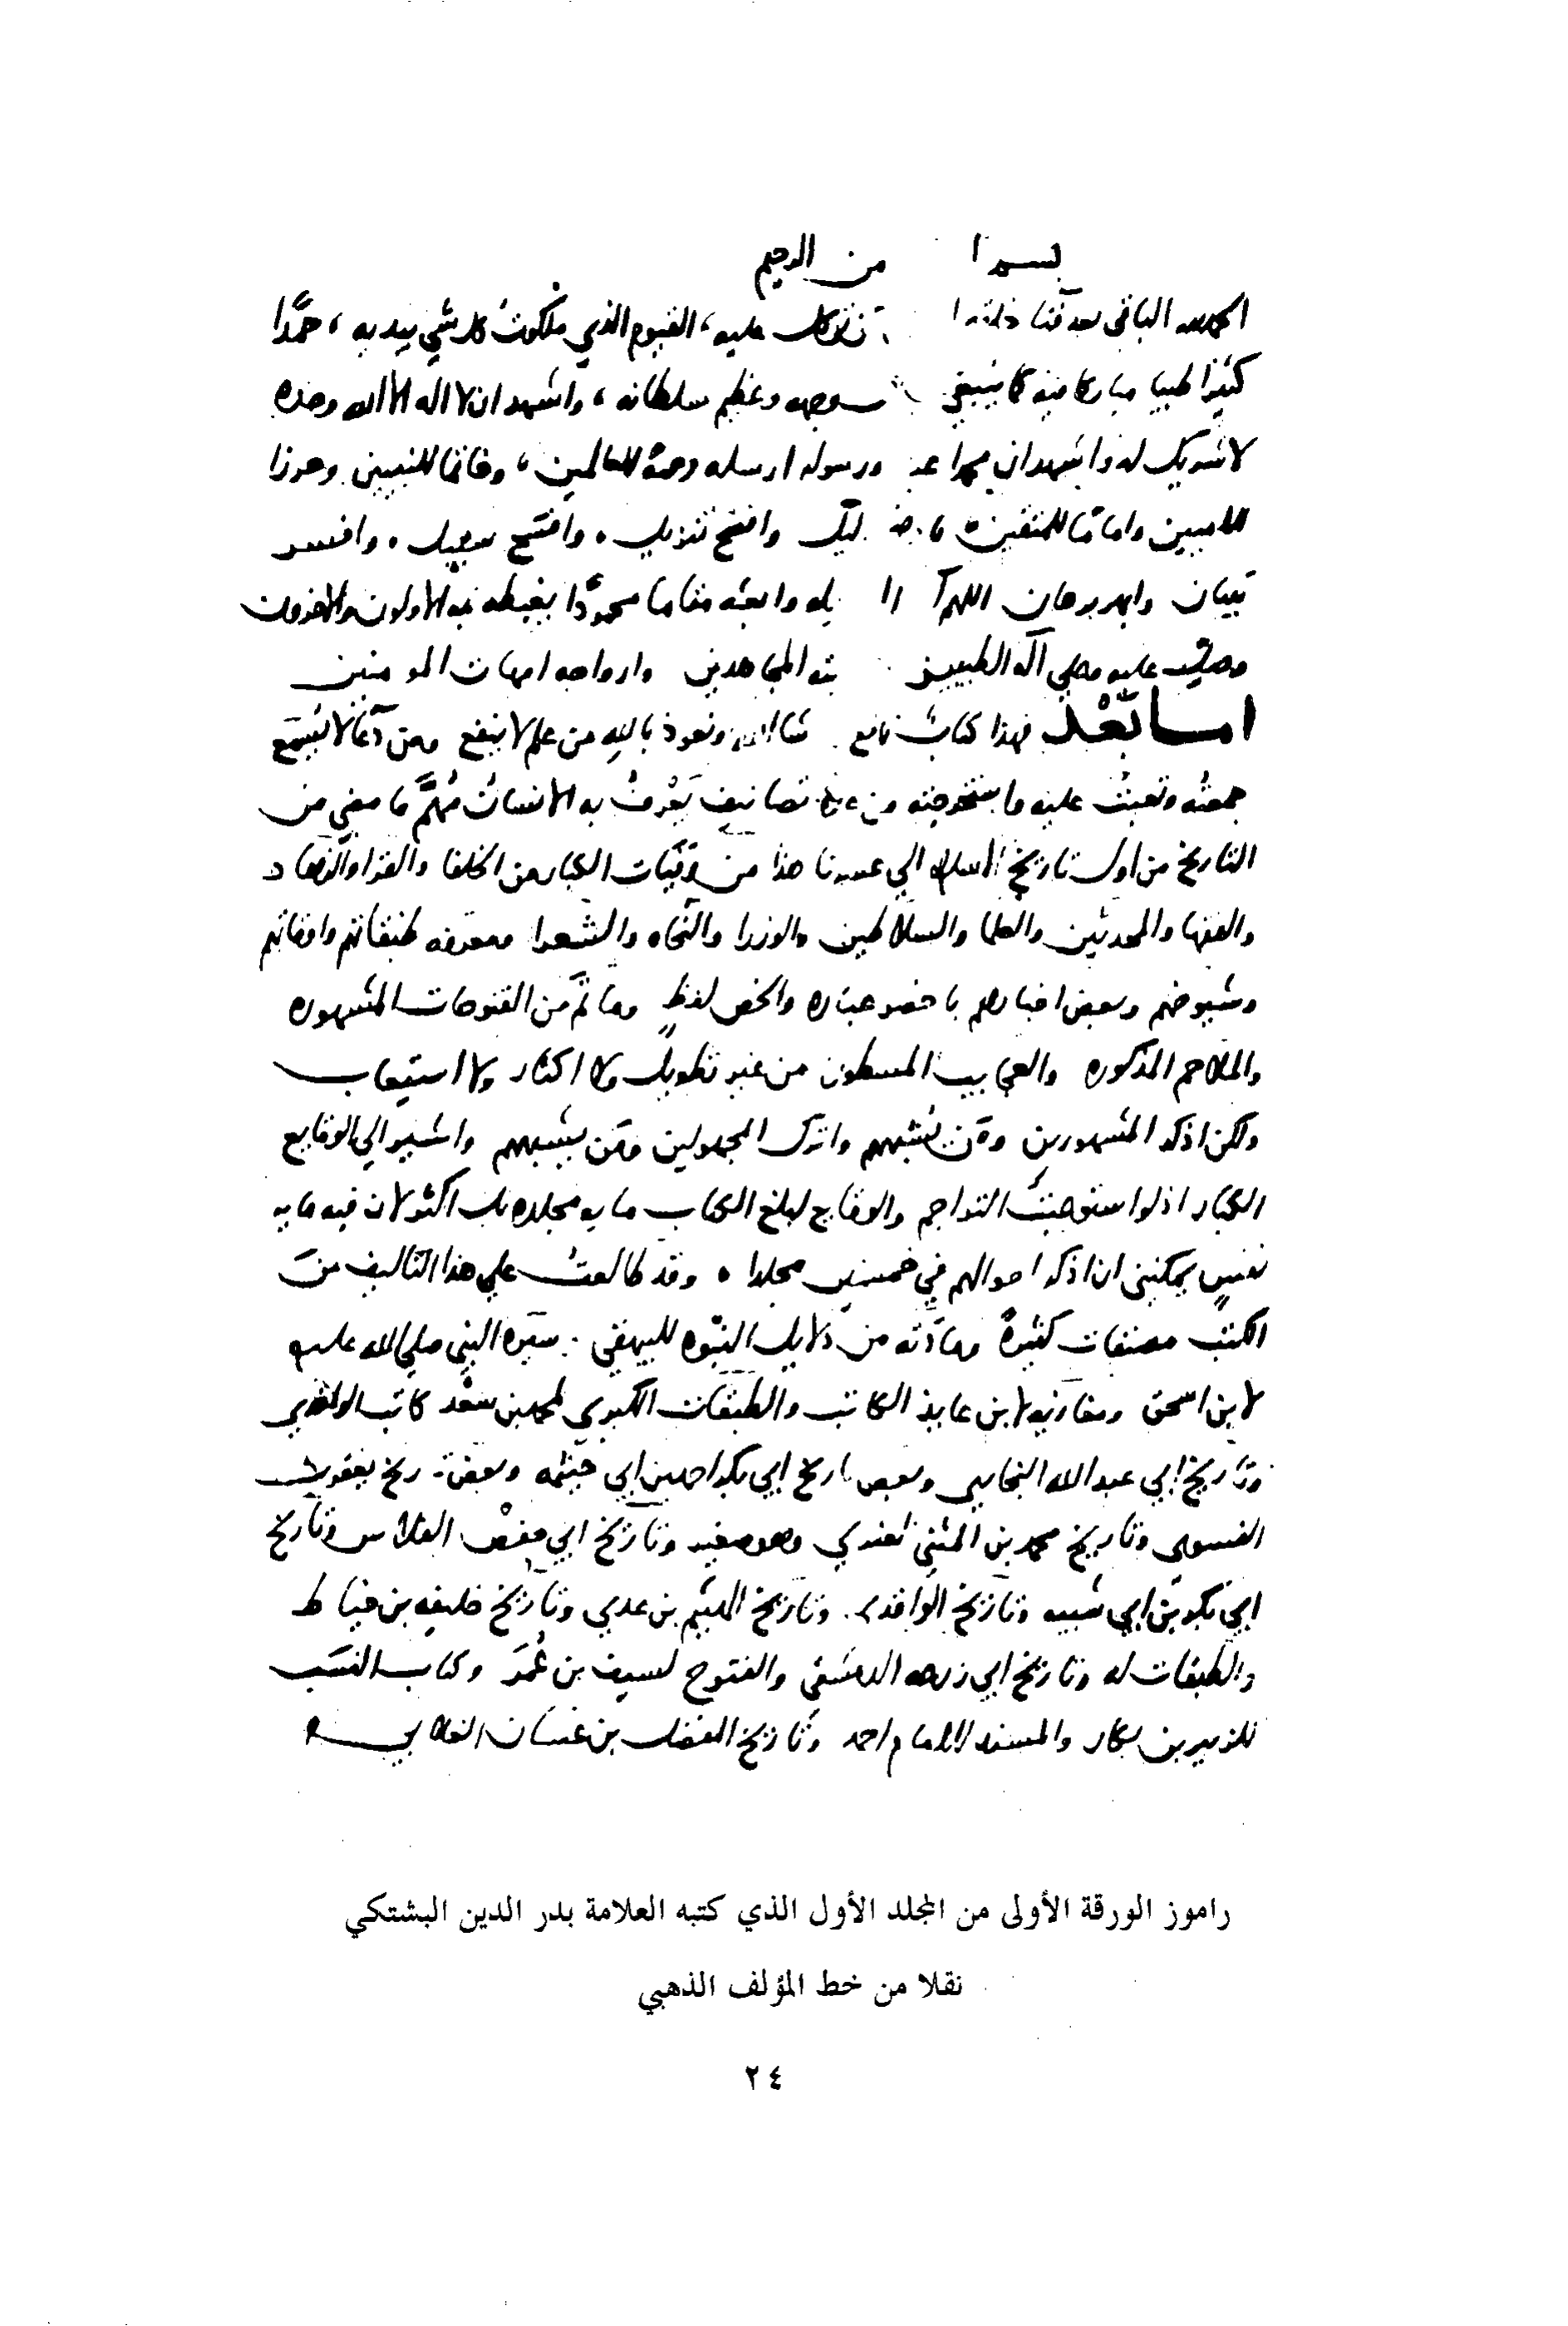 بسم ا من الرحيم
الحمد لله الباقي بعد فنا خلقه ا نتوكل عليه، القيوم الذي ملكوت كل شي بيديه، حمدًا
كثيرًا طيبا مباركا فيه كما ينبغي وجهه وعظيم سلطانه، واشهد ان لا اله الا الله وحده
لا شريك له واشهد ان محمدا عبد ورسوله ارسله رحمة للعالمين، وخاتما للنبيين وحرزا
للاميين واماما للمتقين ليل وافصح تنزيل، وافسح سبيل، وافسر
تبيان وابهر برهان اللهم ا يله وابعثه مقاما محمودًا يغبطه به الاولون والاخرون
وصل عليه وعلى آله الطيبين بته المجاهدين وازواجه امهات المومنين
اما بعد فهذا كتاب نافع شا الله ونعوذ بالله من علم لا ينفع ومن دعا لا يسمع
جمعته وتعبت عليه واستخرجته من عدة تصانيف يعرف به الانسان مهم ما مضى من
التاريخ من اول تاريخ الاسلام الى عصرنا هذا من وفيات الكبار من الخلفا والقرا والزهاد
والفقها والمحدثين والعلما والسلاطين والوزرا والنحاه والشعرا ومعرفه طبقاتهم واوقاتهم
وشيوخهم وبعض اخبارهم باخصر عباره والخص لفظ وما تم من الفتوحات المشهوره
والملاحم المذكوره والعجايب المسطوره من غير تطويل ولا اكثار ولا استيعاب
ولكن اذكر المشهورين ومن يشبههم واترك المجهولين ومن يشبههم واشير الى الوقايع
الكبار اذ لو استوعبت التراجم والوقايع لبلغ الكتاب مايه مجلده بل اكثر لان فيه مايه
نفس يمكنني ان اذكر احوالهم في خمسين مجلدا ٥ وقد طالعت على هذا التاليف من
الكتب مصنفات كثيرة ومادته من دلايل النبوه للبيهقي . سيره النبي صلى الله عليه
لابن اسحق ومغازيه لابن عايذ الكاتب والطبقات الكبرى لمحمد بن سعد كاتب الواقدي
وتاريخ ابي عبد الله البخاري وبعض تاريخ ابي بكر احمد بن ابي خيثمه وبعض ريخ يعقوب
الفسوي وتاريخ محمد بن المثنى العنزي وهو صغير وتاريخ ابي حفص الفلاس وتاريخ
ابي بكر بن ابي شيبه وتاريخ الواقدي وتاريخ الهيثم بن عدي وتاريخ خليفه بن خياط
والطبقات له وتاريخ ابي زرعه الدمشقي والفتوح لسيف بن عُمَر وكتاب النسب
للزبير بن بكار والمسند للامام احمد وتاريخ المفضل بن غسان الغلابي
راموز الورقة الأولى من المجلد الأول الذي كتبه العلامة بدر الدين البشتكي
نقلا من خط المؤلف الذهبي
٢٤